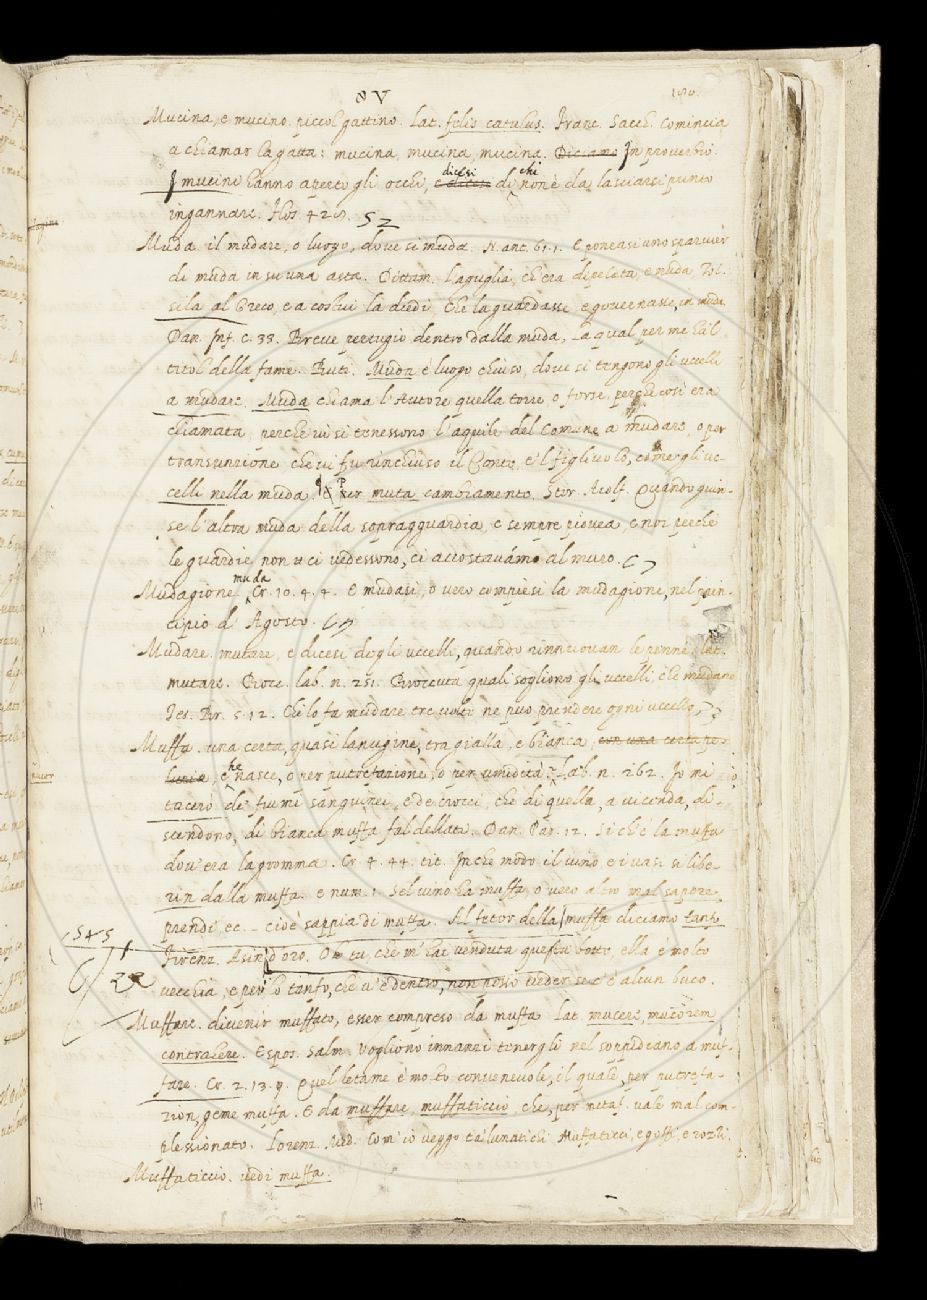 8 V
180.
Mucina, e mucino. piccol gattino. Lat. felis catulus. Franc. Sacch. Comincia
a chiamar la gatta: mucina, mucina, mucina. Diciamo In proverbio.
I mucini hanno aperto gli occhi, dicesi di chi non è da lasciarsi punto
ingannare. Flos. 428. 52
Muda. il mudare, o luogo, dove si muda. N. ant. 61. 1. E poneasi uno sparvier
di muda in su una asta. Dittam. l'aguglia, ch'era dipelata e nuda Tol-
sila al Greco, e a costui la diedi, che la guardasse e governasse, in muda.
Dan. Inf. c. 33. Breve pertugio dentro dalla muda, La qual per me ha 'l
titol della fame. Buti. Muda è luogo chiuso, dove si tengono gli uccelli
a mudare. Muda chiama l'Autore quella torre, o forse, perche così era
chiamata, perche vi si tenessono l'aquile del Comune a mudare, o per
transunzione che vi fu rinchiuso il Conte, e 'l figliuolo, come gli uc-
celli nella muda. per muta cambiamento. Stor. Aiolf. Quando giun-
se l'altra muda della sopragguardia, e sempre piovea, e noi perchè
le guardie non ci vedessono, ci accostavámo al muro.
Mudagione muda Cr. 10. 4. 4. E mudasi, o vero compiesi la mudagione, nel prin-
cipio d'Agosto.
Mudare. mutare, e dicesi degli uccelli, quando rinnuovan le penne. lat.
mutare. Bocc. lab. n. 251. Broccuta quali sogliono gli uccelli, che mudano
Tes. Br. 5. 12. Chi lo fa mudare tre volte ne può prendere ogni uccello,
Muffa. una certa, quasi lanugine, tra gialla, e bianca, con una certa po-
che nasce, o per putrefazione, o per umidità. Lab. n. 262. Io mi
tacerò de' fiumi sanguinei, e de' crocei, che di quella, a vicenda, di-
scendono, di bianca muffa faldellati. Dan. Par. 12. Si ch'è la muffa
dov'era la gromma. Cr. 4. 44. tit. In che modo il vino e i vasi si libe-
rin dalla muffa. e num. 1. Se 'l vino ha muffa, o vero altro mal sapore,
prendi ec. - cioè sappia di muffa. Al fetor della muffa diciamo tanfo
Firenz. Asin d'oro. Oh tu, che m'hai venduta questa botte, ella è molto
vecchia, e per lo tanfo, che v'è dentro, non posso veder se c'è alcun buco.
545
Muffare. divenir muffato, esser compreso da muffa Lat. mucere, mucorem
contrahere. Espos. Salm. Vogliono innanzi tenergli nel soppidiano a muf-
fare. Cr. 2. 13. 9. Quel letame è molto convenevole, il quale, per putrefa-
zion, geme muffa. E da muffare, muffaticcio, che, per metaf. vale mal com-
plessionato. Lorenz. Med. Com'io veggo ta' lunatichi Muffaticci, e goffi, e rozzi.
Muffaticcio. vedi muffa.